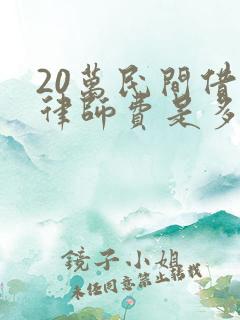 20萬民間借
律師費是多
鏡子小姐
未经同意禁止转载